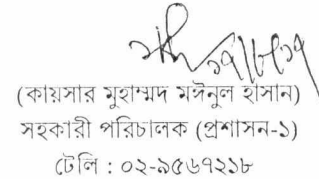 ১৭/৮/১৭
(কায়সার মুহাম্মদ মঈনুল হাসান)
সহকারী পরিচালক (প্রশাসন-১)
টেলি : ০২-৯৫৬৭২১৮